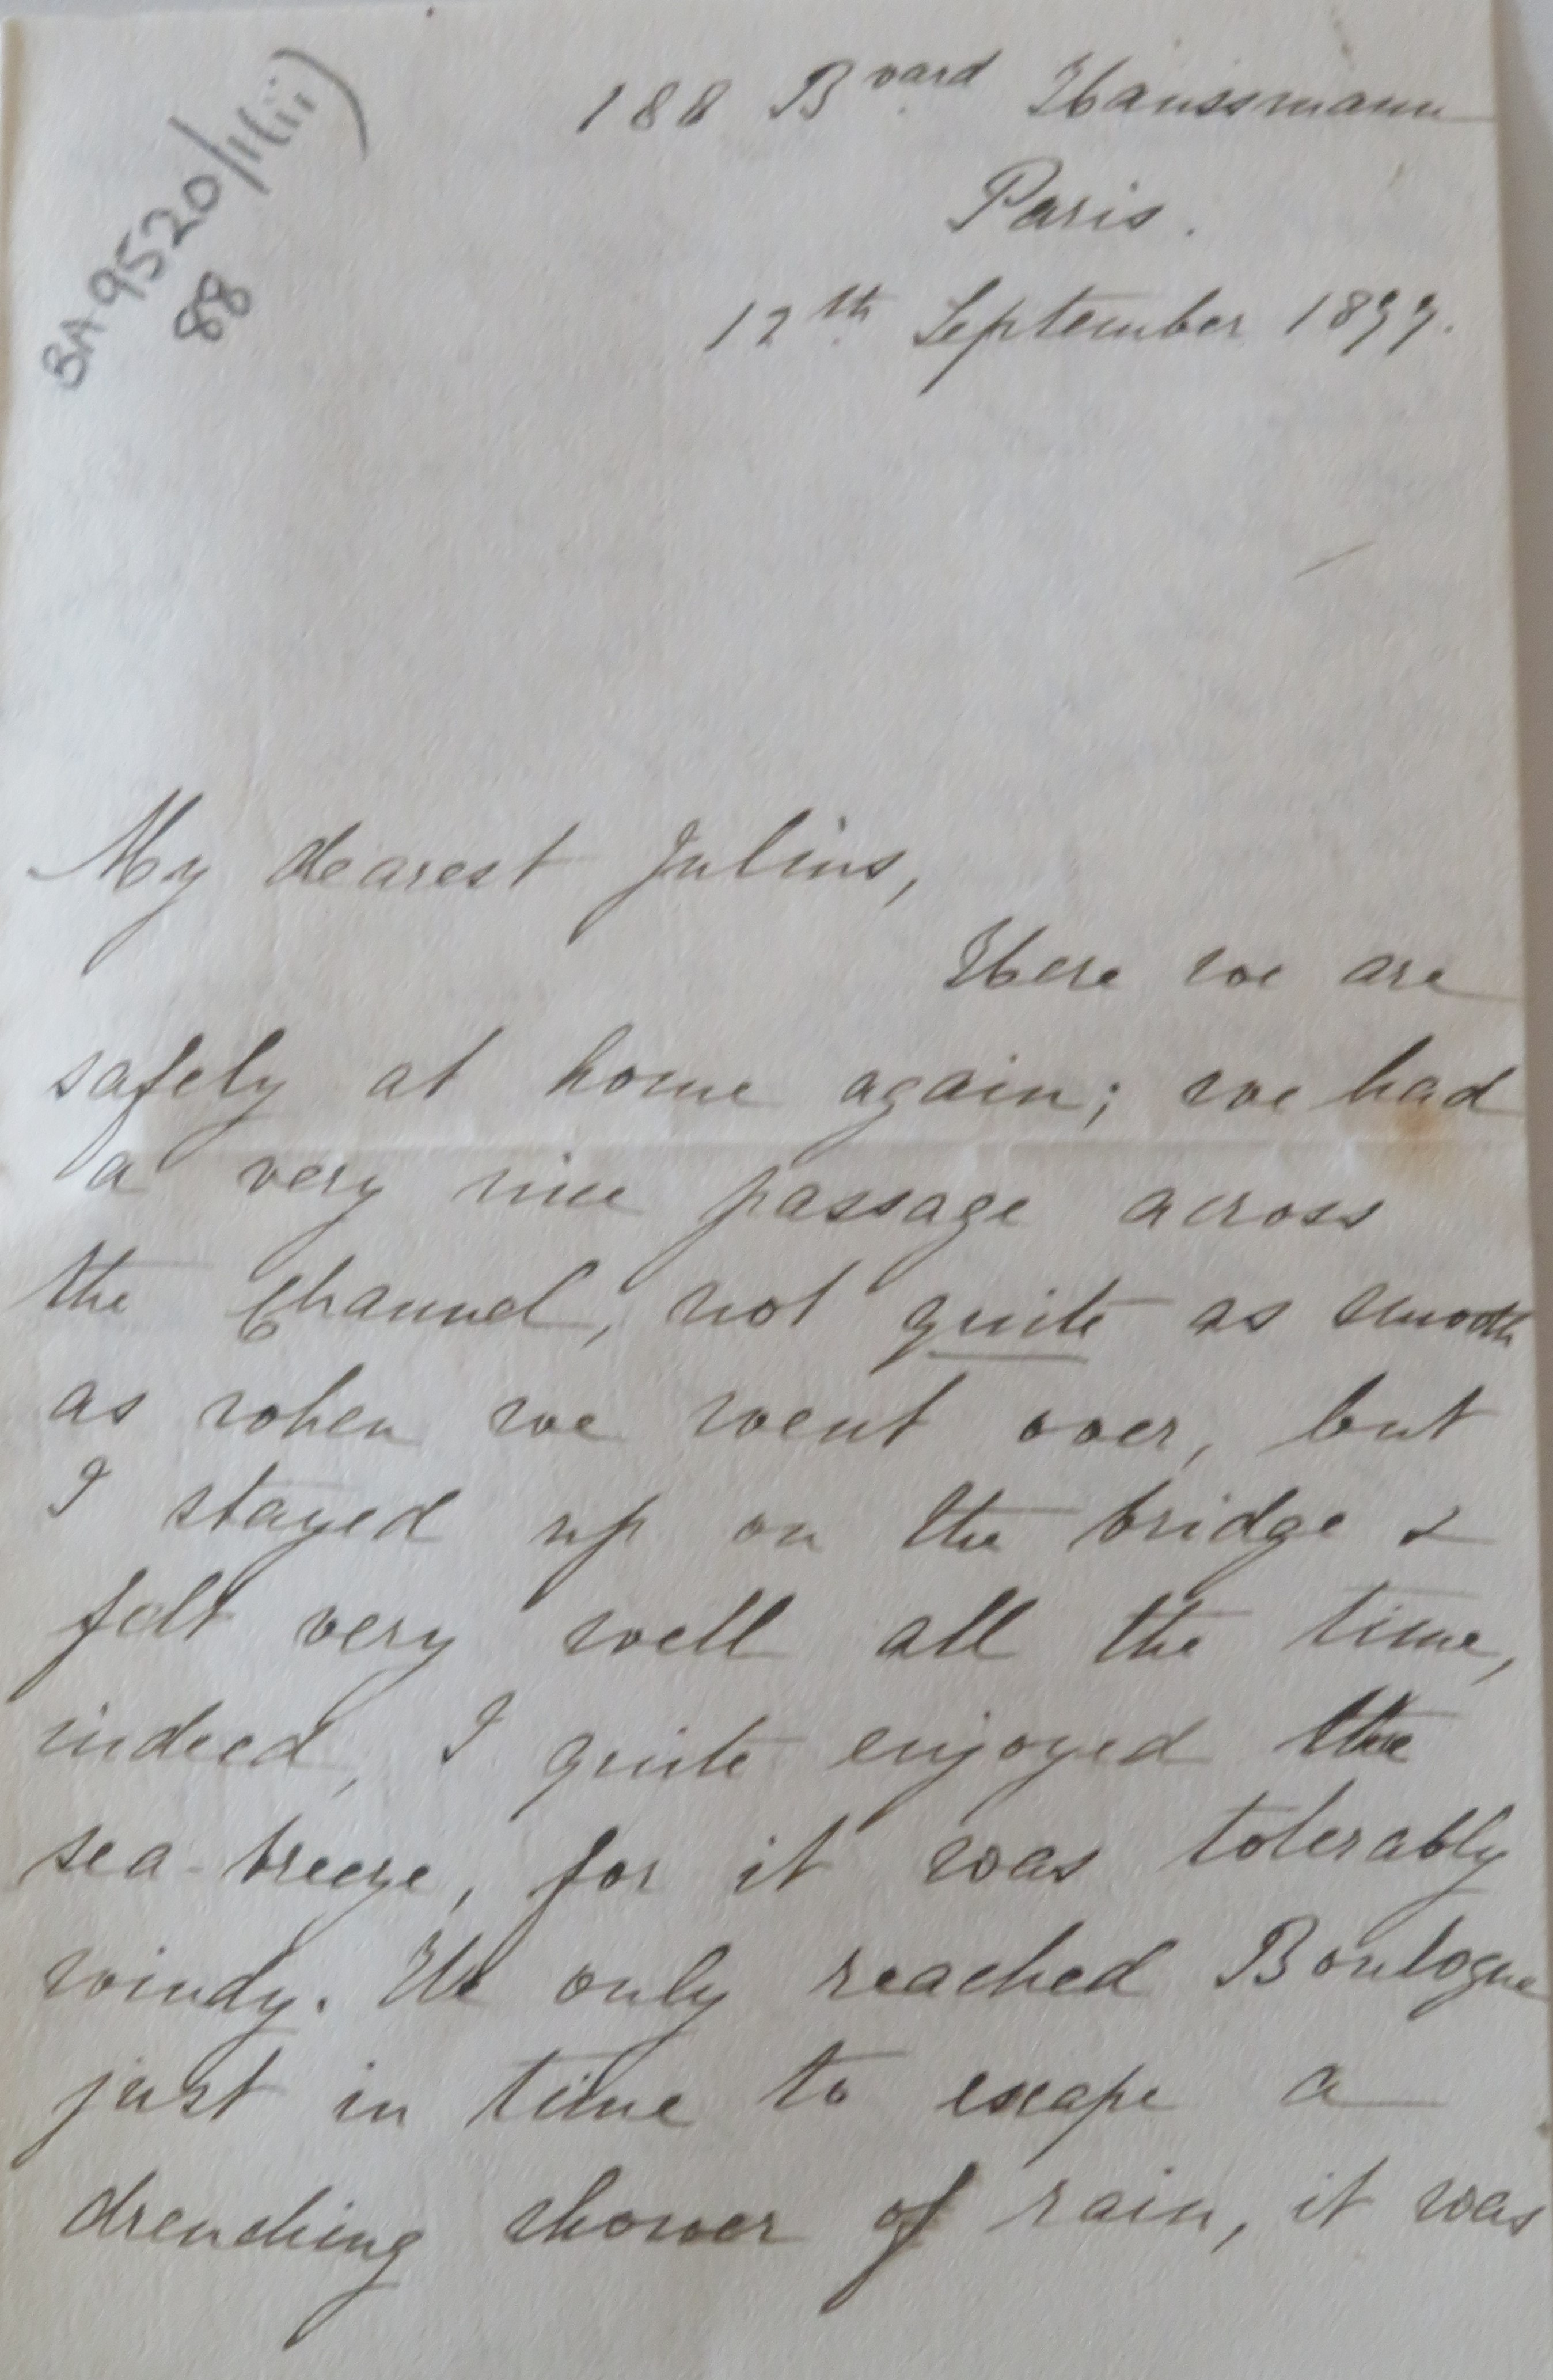 BA9520/1(iii)
88
188 Bvard Haussmann
Paris.
12th September 1899.
My dearest Julius,
Here we are
safely at home again; we had
a very nice passage across
the Channel, not quite as smooth
as when we went over, but
I stayed up on the bridge &
felt very well all the time,
indeed, I quite enjoyed the
sea-breeze, for it was tolerably
windy. We only reached Boulogne
just in time to escape a
drenching shower of rain, it was